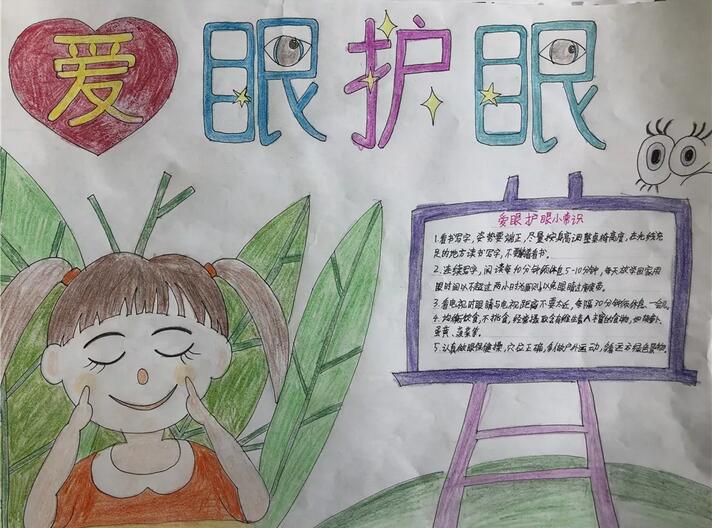 爱眼护眼
爱眼护眼小常识
1.看书写字，姿势要端正，尽量按身高调整桌椅高度，在光线充
足的地方读书写字，不躺着看书。
2.连续写字，阅读每40分钟须休息5-10分钟，每天放学回家用
眼时间以不超过两小时为原则，以免眼睛过度疲劳。
3.看电视时眼睛与电视距离不要太近，每隔30分钟须休息一会儿。
4.均衡饮食，不挑食，经常摄取含有维生素A丰富的食物，如胡萝卜、
蛋黄、蔬菜等。
5.认真做眼保健操，穴位正确，多做户外运动，